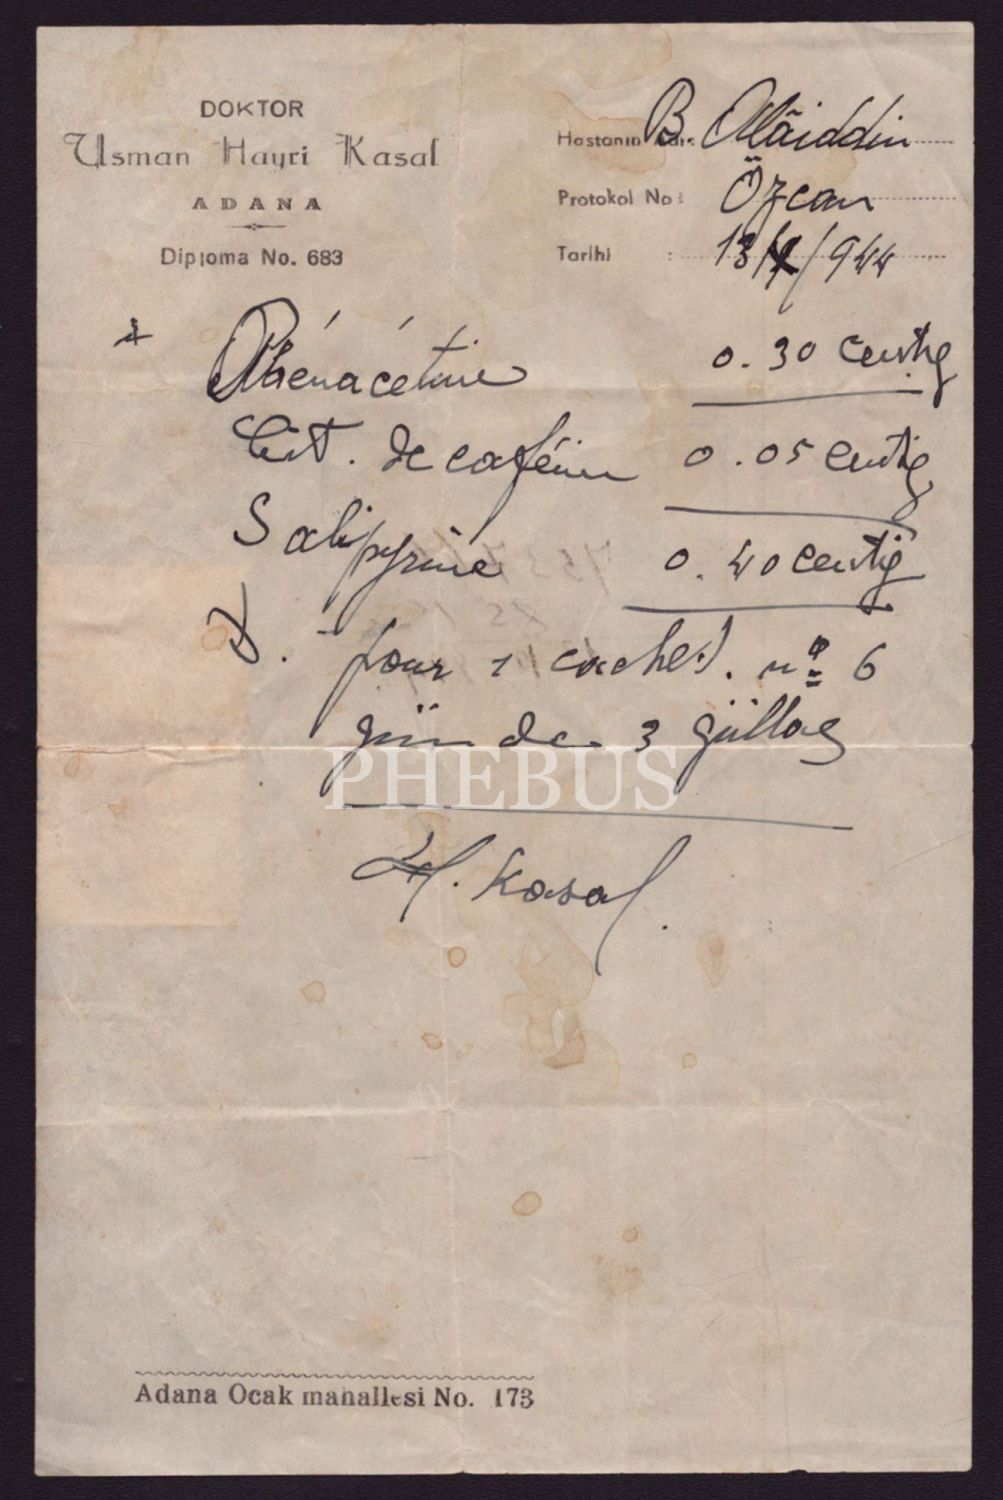 DOKTOR
Usman Hayri Kasal
ADANA
Diploma No. 683
Hastanın B. Alâiddin
Protokol No: Özcan
Tarihi : 13/ /944
Phénacétine 0.30 centig
Cit. de caféine 0.05 centig
Salipyrine 0.40 centig
pour 1 cachet. nº 6
günde 3 güllaç
PHEBUS
H. Kasal
Adana Ocak mahallesi No. 173